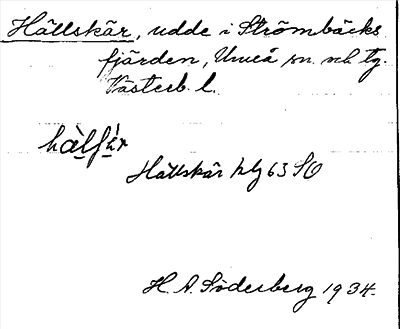 Hällskär, udde i Strömbäcks
fjärden, Umeå sn. och tg.
Västerb. l.
Hällskär kbg 63 SO
H. A. Söderberg 1934.